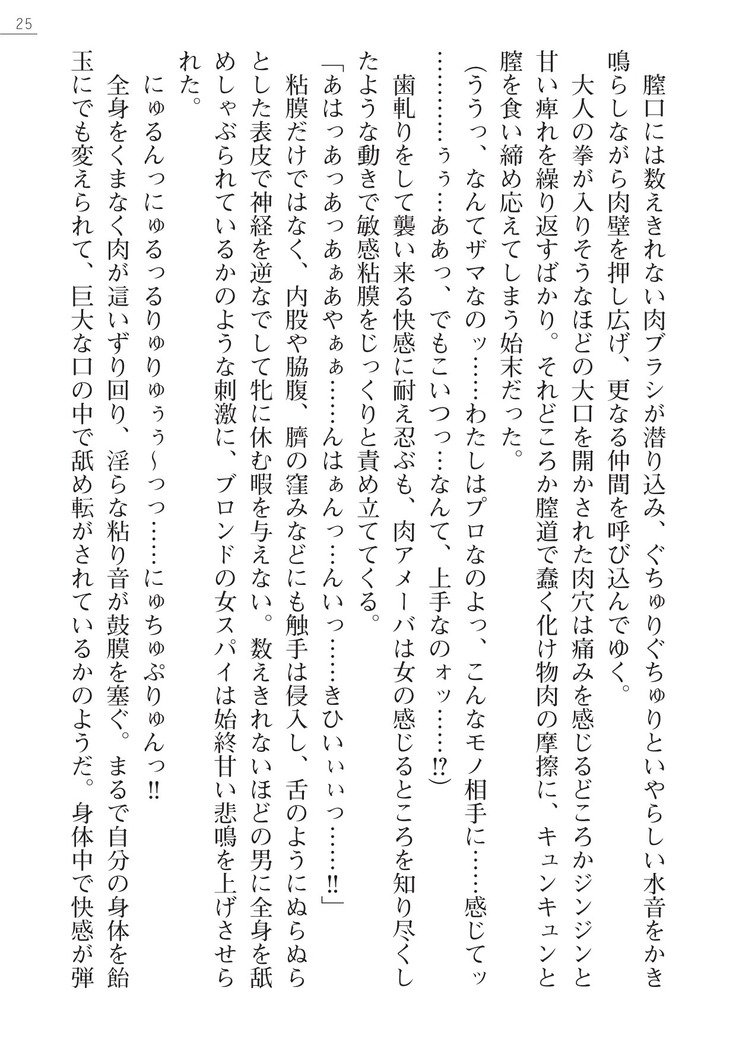 25
膣口には数えきれない肉ブラシが潜り込み、ぐちゅりぐちゅりといやらしい水音をかき
鳴らしながら肉壁を押し広げ、更なる仲間を呼び込んでゆく。
大人の拳が入りそうなほどの大口を開かされた肉穴は痛みを感じるどころかジンジンと
甘い痺れを繰り返すばかり。それどころか膣道で蠢く化け物肉の摩擦に、キュンキュンと
膣を食い締め応えてしまう始末だった。
(ううっ、なんてザマなのッ……わたしはプロなのよっ、こんなモノ相手に……感じてッ
…………ぅぅ…ああっ、でもこいつっ…なんて、上手なのォッ……!?)
歯軋りをして襲い来る快感に耐え忍ぶも、肉アメーバは女の感じるところを知り尽くし
たような動きで敏感粘膜をじっくりと責め立ててくる。
「あはっあっあっあぁあやぁぁ……んはぁんっ…んいっ……きひいぃぃっ……!!」
粘膜だけではなく、内股や脇腹、臍の窪みなどにも触手は侵入し、舌のようにぬらぬら
とした表皮で神経を逆なでして牝に休む暇を与えない。数えきれないほどの男に全身を舐
めしゃぶられているかのような刺激に、ブロンドの女スパイは始終甘い悲鳴を上げさせら
れた。
にゅるんっにゅるっるりゅりゅぅぅ～っっ……にゅちゅぷりゅんっ!!
全身をくまなく肉が這いずり回り、淫らな粘り音が鼓膜を塞ぐ。まるで自分の身体を飴
玉にでも変えられて、巨大な口の中で舐め転がされているかのようだ。身体中で快感が弾